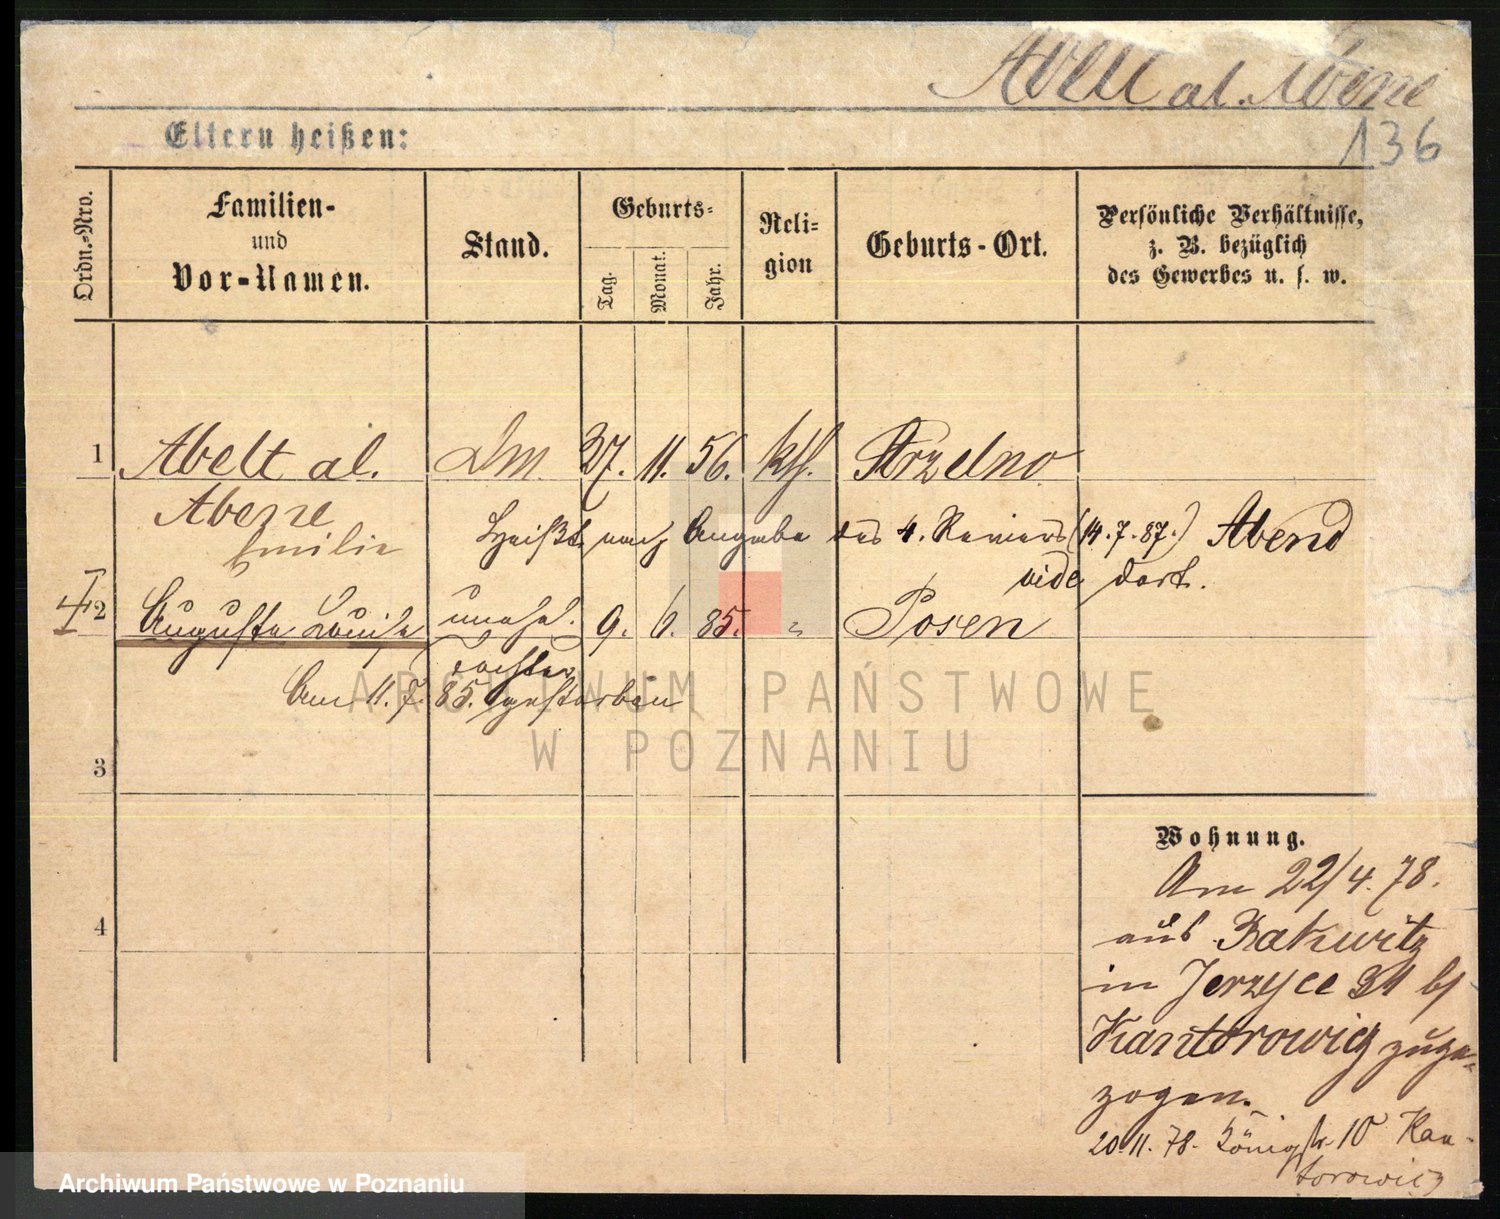 Abelt al. Abene
136
Eltern heißen:
Ordn.-Nro.
Familien-
und
Vor-Namen.
Stand.
Geburts-
Tag.
Monat.
Jahr.
Reli-
gion
Geburts-Ort.
Persönliche Verhältnisse,
z. B. bezüglich
des Gewerbes u. s. w.
1 Abelt al. 27. 11. 56. kth. Strzelno
Abene
Emilie
Heißt nach Angabe des 4. Reviers (14.7.87.) Abend
vide dort.
2 Auguste Louise unehel. 9. 6. 85. " Posen
Tochter
Am 11.7.85. gestorben
ARCHIWUM PAŃSTWOWE
W POZNANIU
3
4
Wohnung.
Am 22/4.78.
aus
in Jerzyce 31 b/
Kantorowicz zuge-
zogen.
20.11.78. Königstr. 10 Kan-
torowicz
Archiwum Państwowe w Poznaniu